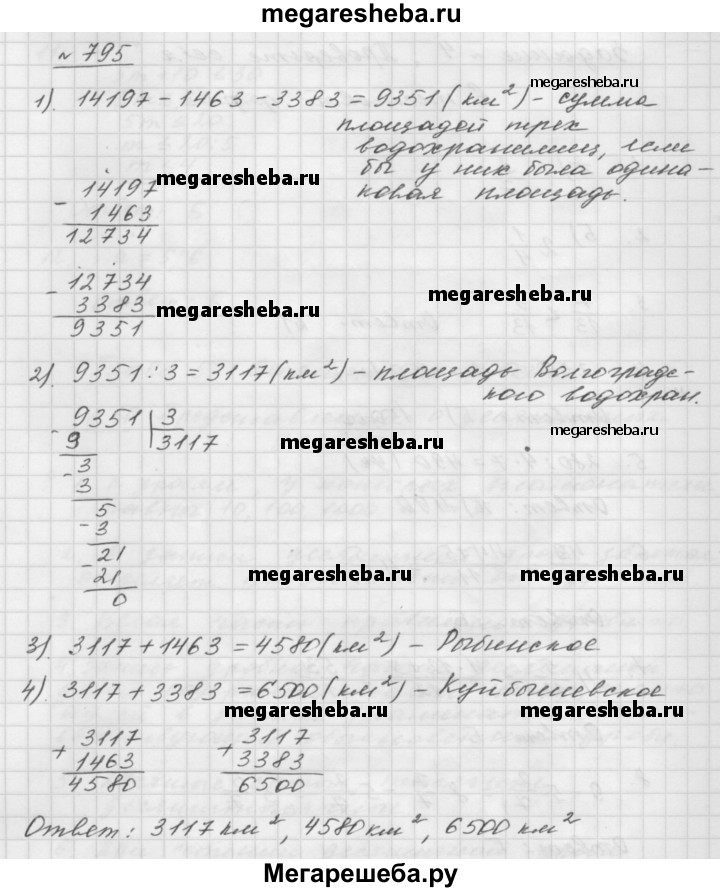 megaresheba.ru
№ 795
1). 14197 - 1463 - 3383 = 9351 (км²) - сумма
megaresheba.ru
площадей трех
водохранилищ, если
бы у них была одина-
ковая площадь.
- 14197
1463
12734
megaresheba.ru
- 12734
3383
9351
megaresheba.ru
megaresheba.ru
2). 9351 : 3 = 3117 (км²) - площадь Волгоградс-
кого водохран.
- 9351 | 3
9 3117
- 3
3
5
- 3
- 21
21
0
megaresheba.ru
megaresheba.ru
megaresheba.ru
megaresheba.ru
3). 3117 + 1463 = 4580 (км²) - Рыбинское
4). 3117 + 3383 = 6500 (км²) - Куйбышевское
megaresheba.ru
megaresheba.ru
+ 3117
1463
4580
+ 3117
3383
6500
Ответ: 3117 км², 4580 км², 6500 км²
Мегарешеба.ру